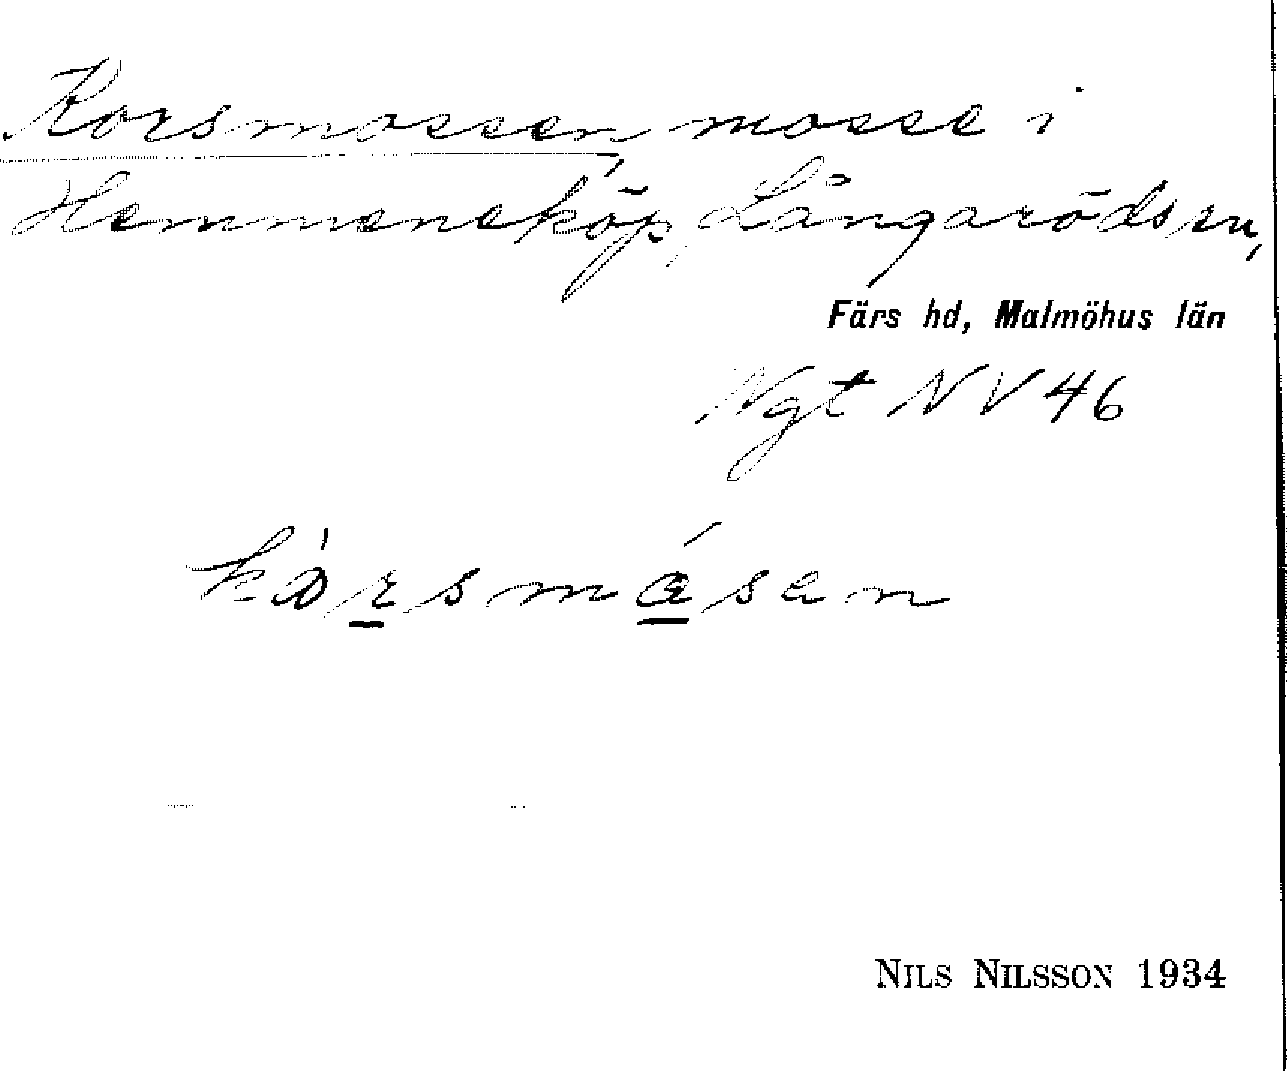 Korsmossen, mosse i
Hemmeneköp, Långaröds sn,
Färs hd, Malmöhus län
Ngt NV 46
NILS NILSSON 1934